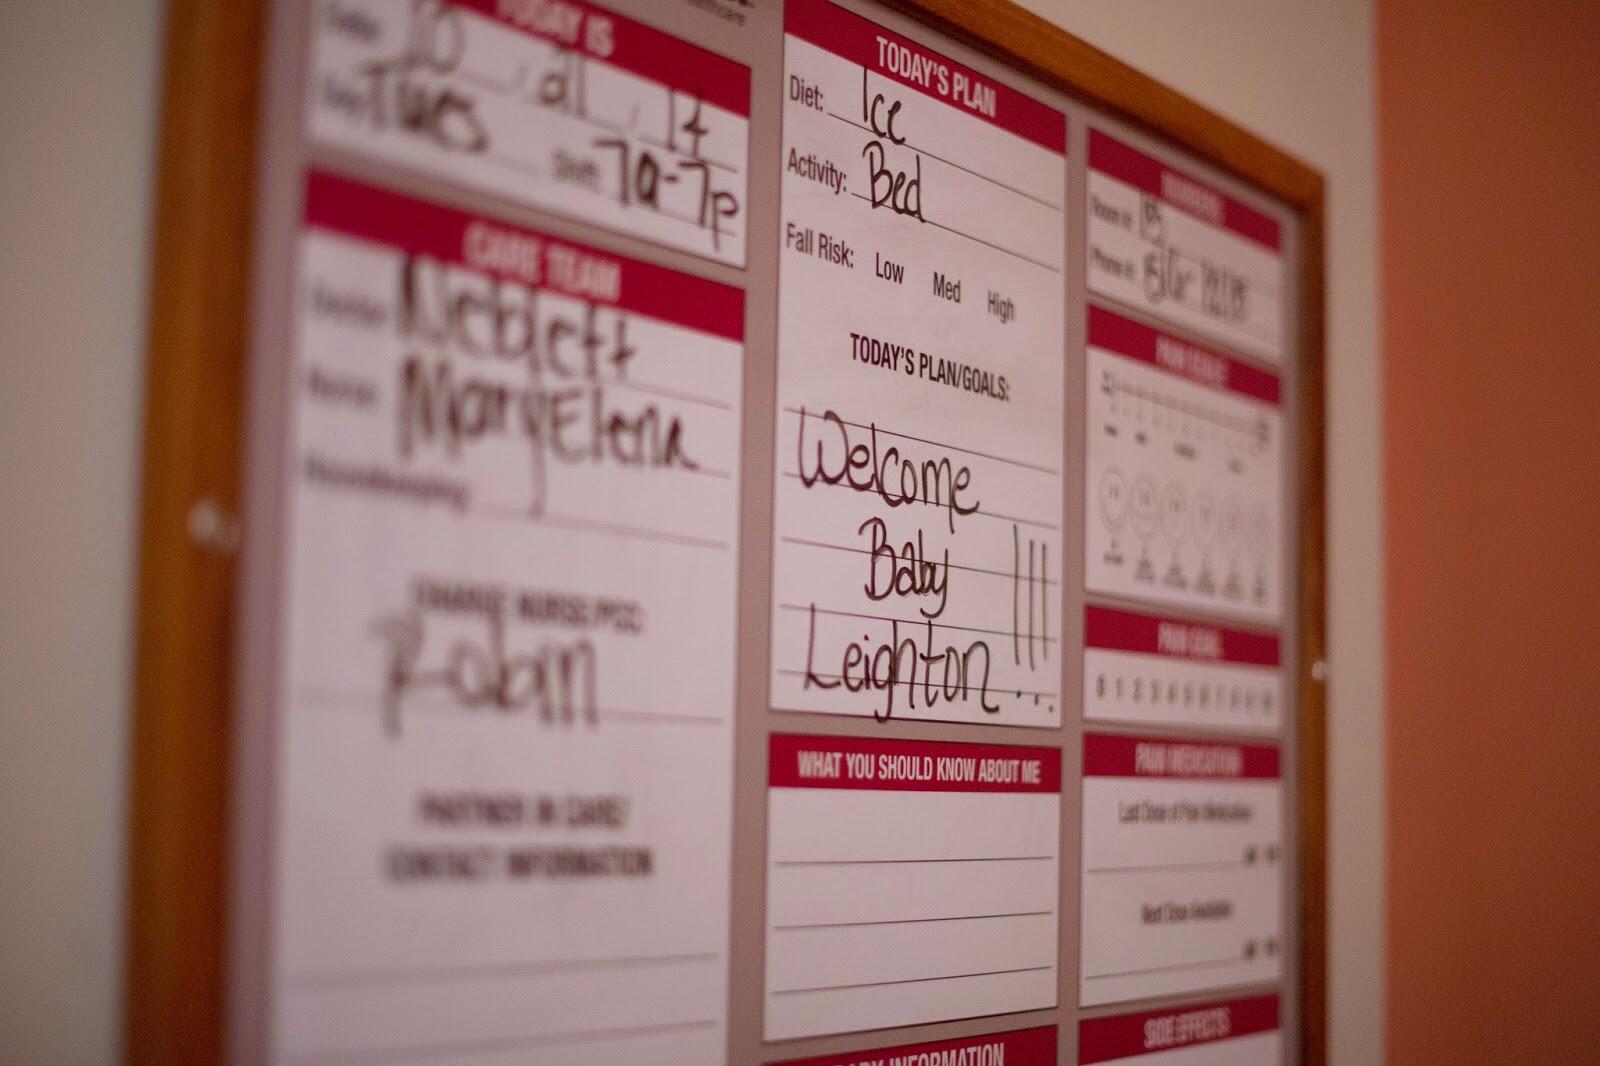 TODAY IS
Date: 10, 21, 14
Day: Tues Shift: 7a-7p
CARE TEAM
Neblett
Nurse: MaryElena
Housekeeping:
CHARGE NURSE/PCC:
Robin
PARTNER IN CARE/
CONTACT INFORMATION
healthcare
TODAY'S PLAN
Diet: Ice
Activity: Bed
Fall Risk: Low Med High
TODAY'S PLAN/GOALS:
Welcome
Baby
Leighton...
WHAT YOU SHOULD KNOW ABOUT ME
INFORMATION
Room #:
Phone #:
PAIN SCALE
PAIN GOAL
0 1 2 3 4 5 6 7 8 9 10
PAIN MEDICATION
Last Dose of Pain Medication
Next Dose Available
SIDE EFFECTS